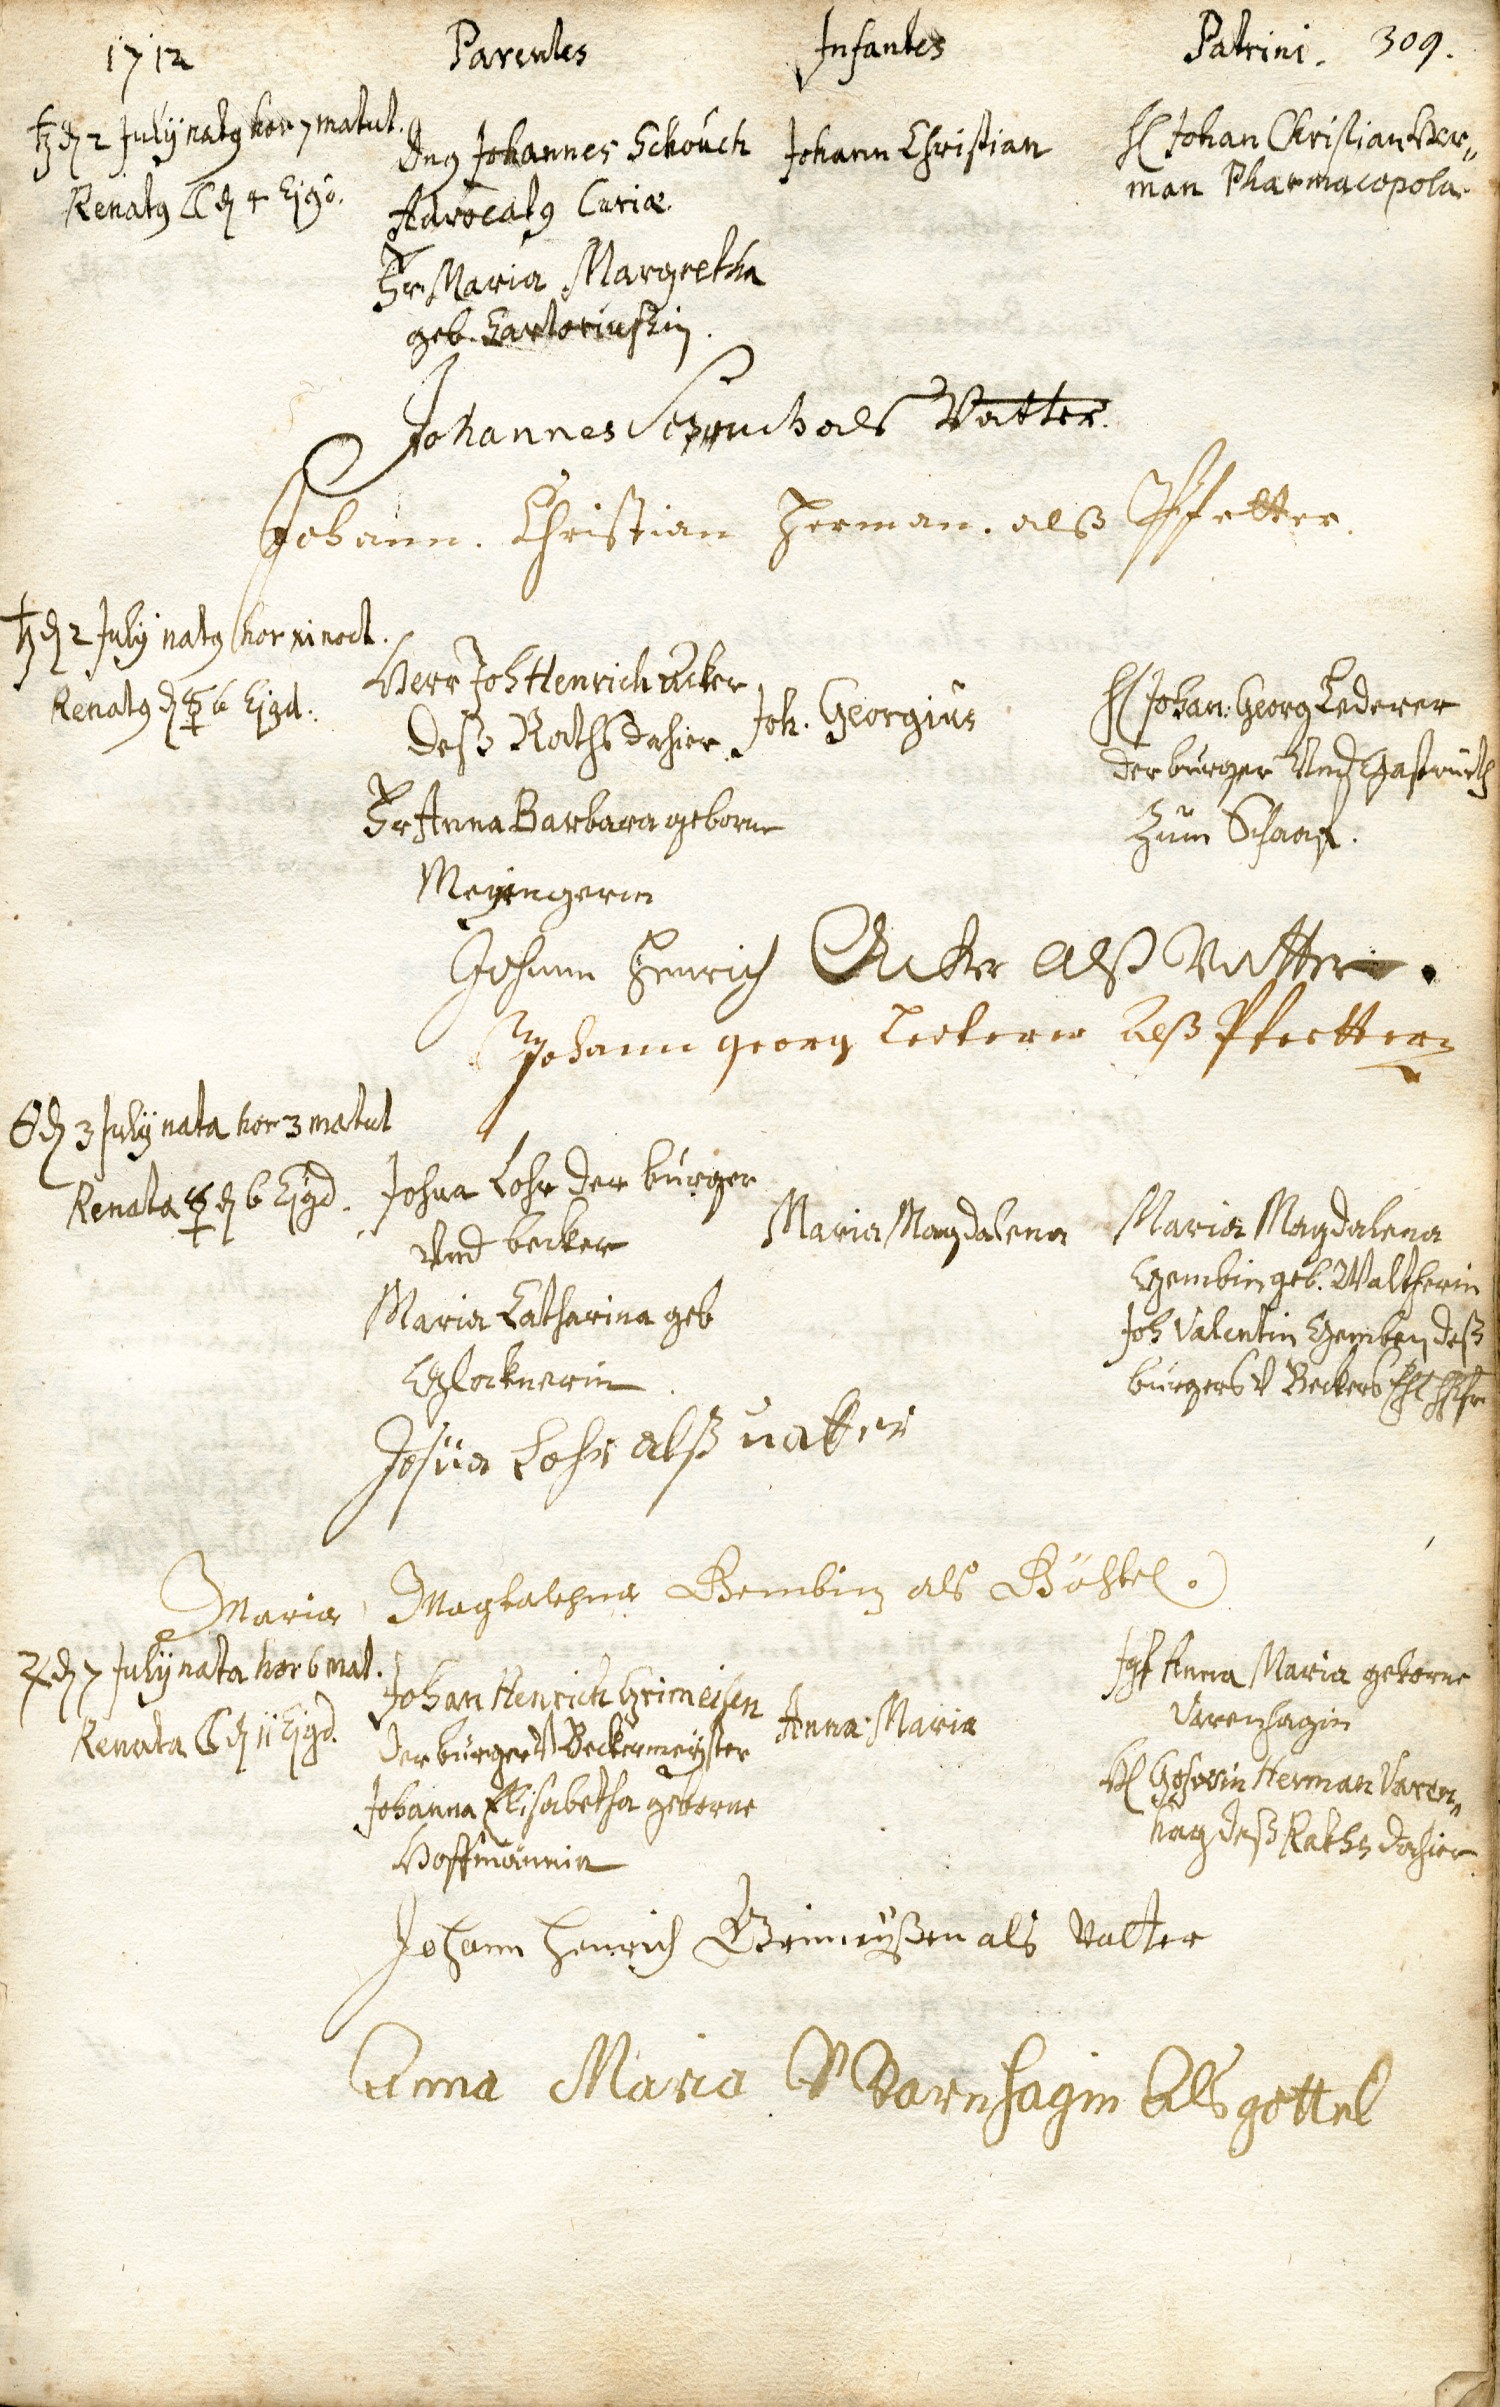 1712 Parentes Infantes Patrini. 309.
♄ d 2 Julÿ natq hor 7 matut.
Renatq ☾ d 4 Ejgd.
Dnq Johannes Schouch
Advocatq Curiæ.
Fr Maria Margretha
geb. Sartoriußin.
Johann Christian
H Johan Christian Her„
man Pharmacopola.
Johannes Schouch als Vatter.
Johann. Christian Herman. alß Pfetter.
♄ d 2 Julÿ natq hor xi noct.
Renatq d ☿ 6 Ejgd.
Herr Joh Henrich Acker
deß Raths dahier
Fr Anna Barbara geborne
Meyingerin
Joh. Georgius
H Johan: Georg Lederer
der burger Vnd Gastwürth
Zum Schaaf.
Johann Henrich Acker alß Vatter.
Johann georg Lederer alß Pfetter
☉ d 3 Julÿ nata hor 3 matut
Renata ☿ d 6 Ejgd.
Josua Lohr der burger
Vnd becker
Maria Catharina geb
Glocknerin
Maria Magdalena
Maria Magdalena
Gembin geb. Waltherin
Joh Valentin Gemben deß
burgers V Beckers
Josua Lohr alß vatter
Maria Magtalehna Gembin als Göhtel.
♃ d 7 Julÿ nata hor 6 mat.
Renata ☾ d 11 Ejgd.
Johan Henrich Grimeisen
der burger V Beckermeyster
Johanna Elisabetha geborne
Hoffmännin
Anna Maria
Jgf Anna Maria geborne
Varenhagin
H Goswin Herman Varen„
hag deß Raths dahier
Johann Henrich Grimeyßen als Vatter
Anna Maria Varnhagin Als gottel